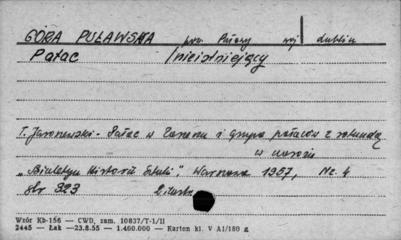 GÓRA PUŁAWSKA pow. Puławy woj. lublin
Pałac (nieistniejący)
T. Jaroszewski - Pałac w i grupa pałaców z rotundą
w narożu
"Biuletyn Historii Sztuki", Warszawa 1957, Nr. 4
str 323 2 ilustr.
Wzór Kb-156 — CWD, zam. 10837/T-1/II
2445 — Łak —23.8.55 — 1.460.000 — Karton kl. V A1/180 g